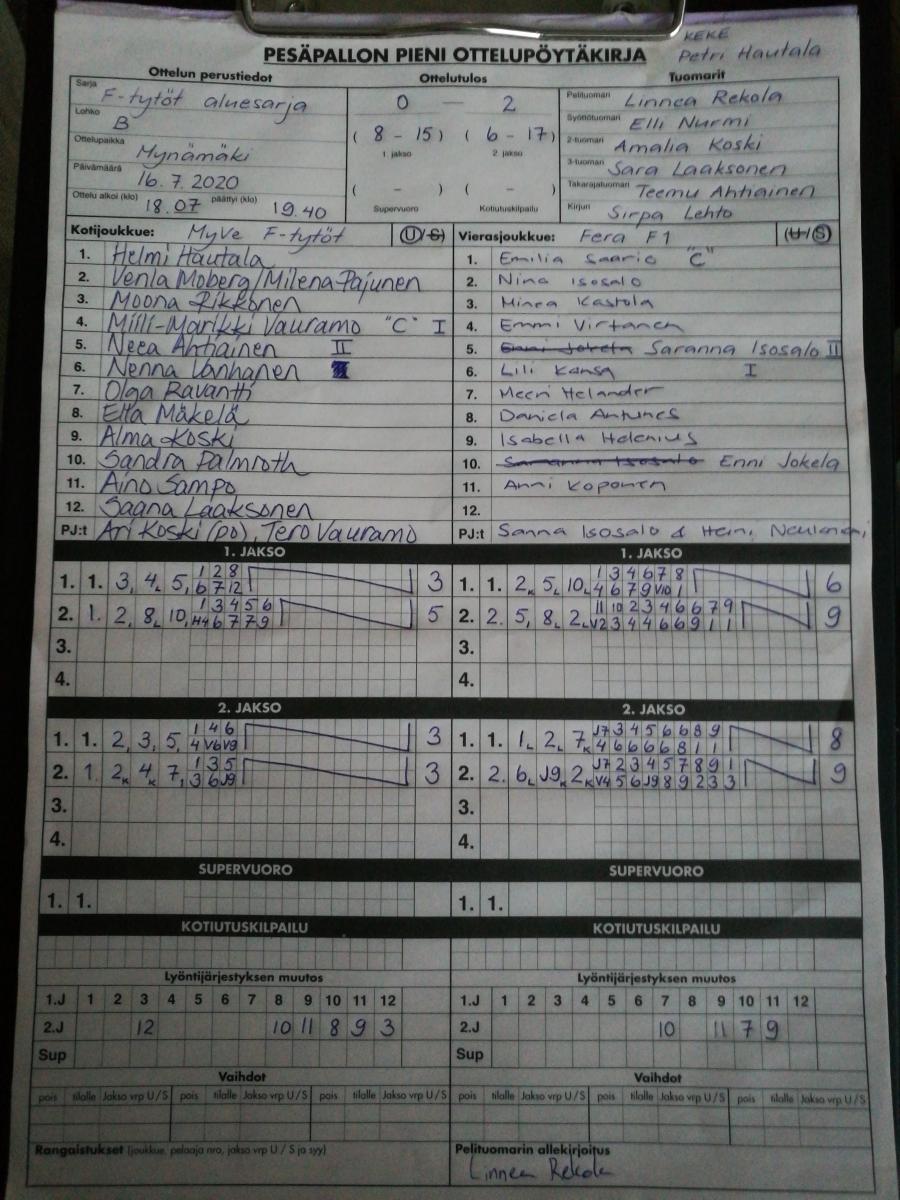 KEKE
Petri Hautala
PESÄPALLON PIENI OTTELUPÖYTÄKIRJA
Ottelun perustiedot
Ottelutulos
Tuomarit
Sarja F-tytöt aluesarja
Lohko B
Ottelupaikka Mynämäki
Päivämäärä 16.7.2020
Ottelu alkoi (klo) 18.07 päättyi (klo) 19.40
0 — 2
( 8 - 15 ) ( 6 - 17 )
1. jakso 2. jakso
( - ) ( - )
Supervuoro Kotiutuskilpailu
Pelituomari Linnea Rekola
Syöttötuomari Elli Nurmi
2-tuomari Amalia Koski
3-tuomari Sara Laaksonen
Takarajatuomari Teemu Ahtiainen
Kirjuri Sirpa Lehto
Kotijoukkue: MyVe F-tytöt (U/S)
1. Helmi Hautala
2. Venla Moberg/Milena Pajunen
3. Moona Rikkonen
4. Milli-Marikki Vauramo "C" I
5. Neea Ahtiainen II
6. Nenna Vanhanen
7. Olga Ravantti
8. Ella Mäkelä
9. Alma Koski
10. Sandra Palmroth
11. Aino Sampo
12. Saana Laaksonen
PJ:t Ari Koski (po), Tero Vauramo
Vierasjoukkue: Fera F1 (U/S)
1. Emilia Saario "C"
2. Nina Isosalo
3. Minea Kastola
4. Emmi Virtanen
5. Enni Jokela Saranna Isosalo II
6. Lili Kansa I
7. Meeri Helander
8. Daniela Antunes
9. Isabella Helenius
10. Enni Jokela
11. Anni Koponen
12.
PJ:t Sanna Isosalo & Heini
1. JAKSO
1. 1. 3, 4, 5, 1 2 8 3
6 7 12
2. 1. 2, 8, 10, 1 3 4 5 6 5
H4 6 7 7 9
3.
4.
1. JAKSO
1. 1. 2, 5, 10, 1 3 4 6 7 8 6
4 6 7 9 V10 1
2. 2. 5, 8, 2, 11 10 2 3 4 6 6 7 9 9
V2 3 4 4 6 6 9 1 1
3.
4.
2. JAKSO
1. 1. 2, 3, 5, 1 4 6 3
4 V6 V9
2. 1. 2K 4K 7, 1 3 5 3
3 6 J9
3.
4.
2. JAKSO
1. 1. 1L 2L 7K J7 3 4 5 6 6 8 9 8
4 6 6 6 6 8 1 1
2. 2. 6L J9K 2K J7 2 3 4 5 7 8 9 1 9
V4 5 6 J9 8 9 2 3 3
3.
4.
SUPERVUORO
1. 1.
SUPERVUORO
1. 1.
KOTIUTUSKILPAILU
KOTIUTUSKILPAILU
Lyöntijärjestyksen muutos
1.J 1 2 3 4 5 6 7 8 9 10 11 12
2.J 12 10 11 8 9 3
Sup
Lyöntijärjestyksen muutos
1.J 1 2 3 4 5 6 7 8 9 10 11 12
2.J 10 11 7 9
Sup
Vaihdot
pois tilalle Jakso vrp U/S pois tilalle Jakso vrp U/S pois tilalle Jakso vrp U/S
Vaihdot
pois tilalle Jakso vrp U/S pois tilalle Jakso vrp U/S pois tilalle Jakso vrp U/S
Rangaistukset (joukkue, pelaaja nro, jakso vrp U / S ja syy)
Pelituomarin allekirjoitus
Linnea Rekola